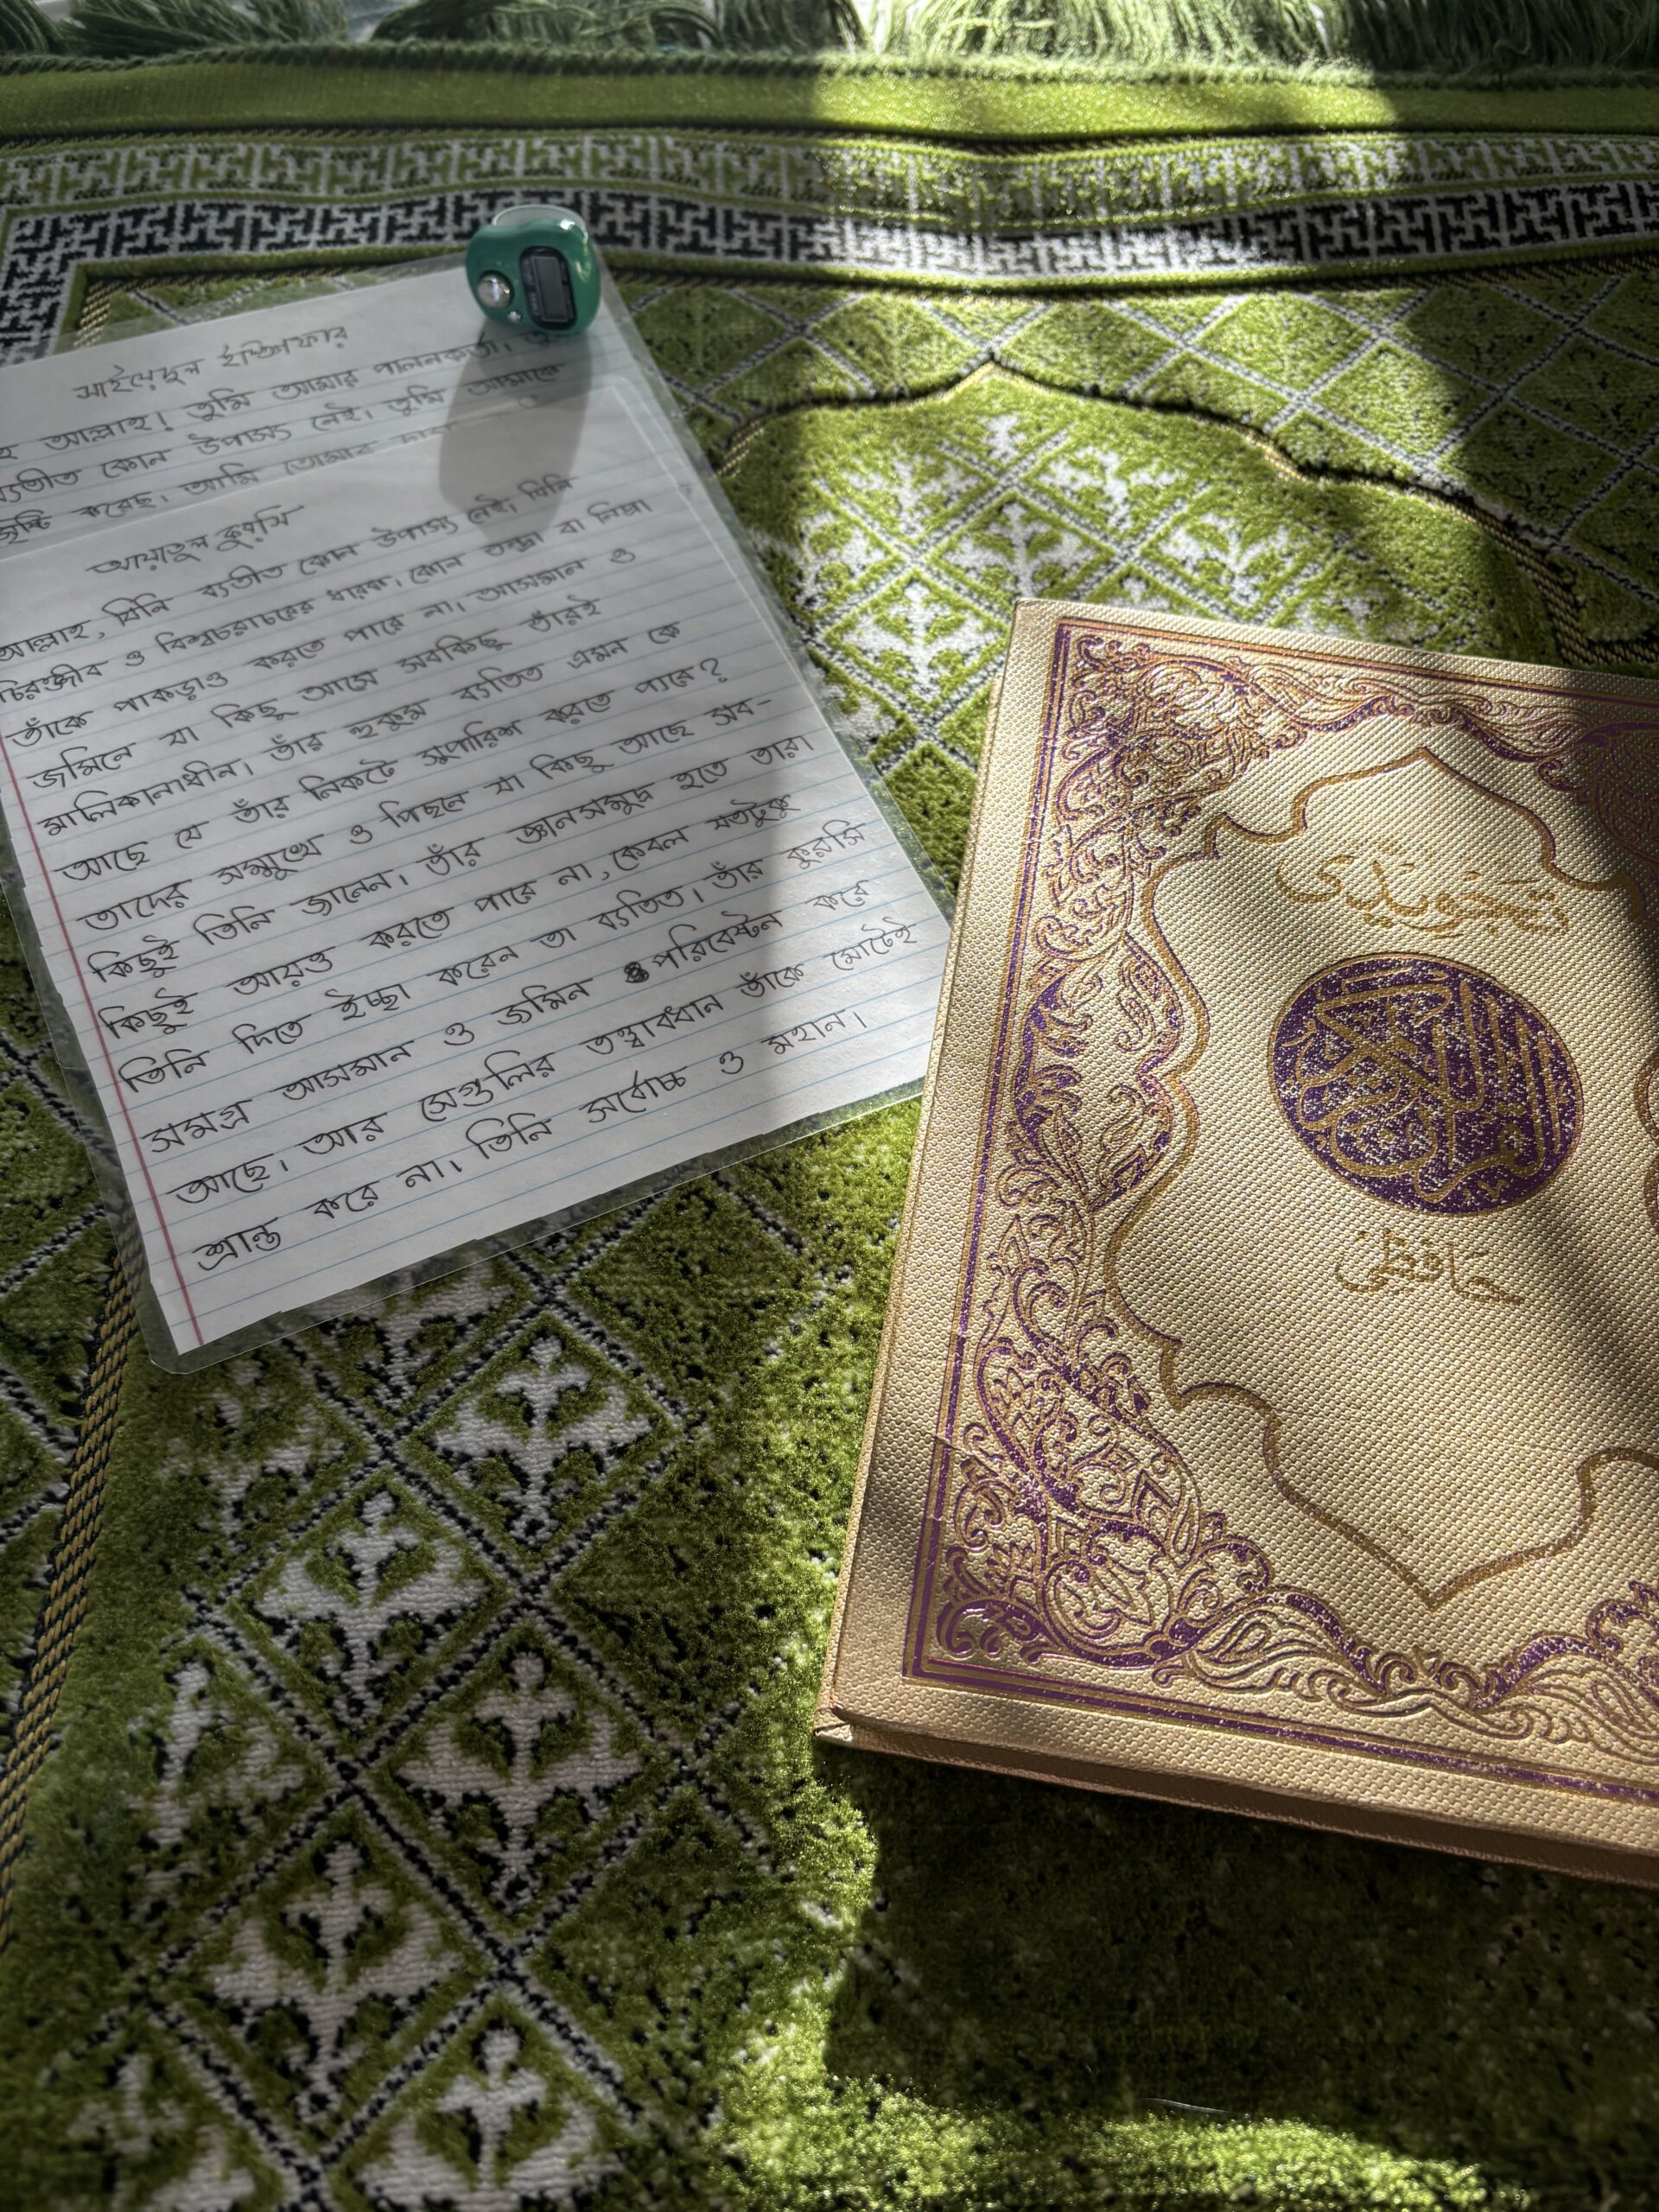 সাইয়েদুল ইস্তিগফার
হে আল্লাহ! তুমি আমার পালনকর্তা। তুমি
ব্যতীত কোন উপাস্য নেই। তুমি আমাকে
সৃষ্টি করেছ। আমি তোমার দাস
আয়তুল কুরসি
আল্লাহ, যিনি ব্যতীত কোন উপাস্য নেই। যিনি
চিরঞ্জীব ও বিশ্বচরাচরের ধারক। কোন তন্দ্রা বা নিদ্রা
তাঁকে পাকড়াও করতে পারে না। আসমান ও
জমিনে যা কিছু আসে সবকিছু তাঁরই
মালিকানাধীন। তাঁর হুকুম ব্যতিত এমন কে
আছে যে তাঁর নিকটে সুপারিশ করতে পারে?
তাদের সম্মুখে ও পিছনে যা কিছু আছে সব-
কিছুই তিনি জানেন। তাঁর জ্ঞানসমুদ্র হতে তারা
কিছুই আয়ত্ত করতে পারে না, কেবল যতটুকু
তিনি দিতে ইচ্ছা করেন তা ব্যতিত। তাঁর কুরসি
সমগ্র আসমান ও জমিন পরিবেষ্টন করে
আছে। আর সেগুলির তত্ত্বাবধান তাঁকে মোটেই
শ্রান্ত করে না। তিনি সর্বোচ্চ ও মহান।
تجويدى
القرآن الكريم
حافظى